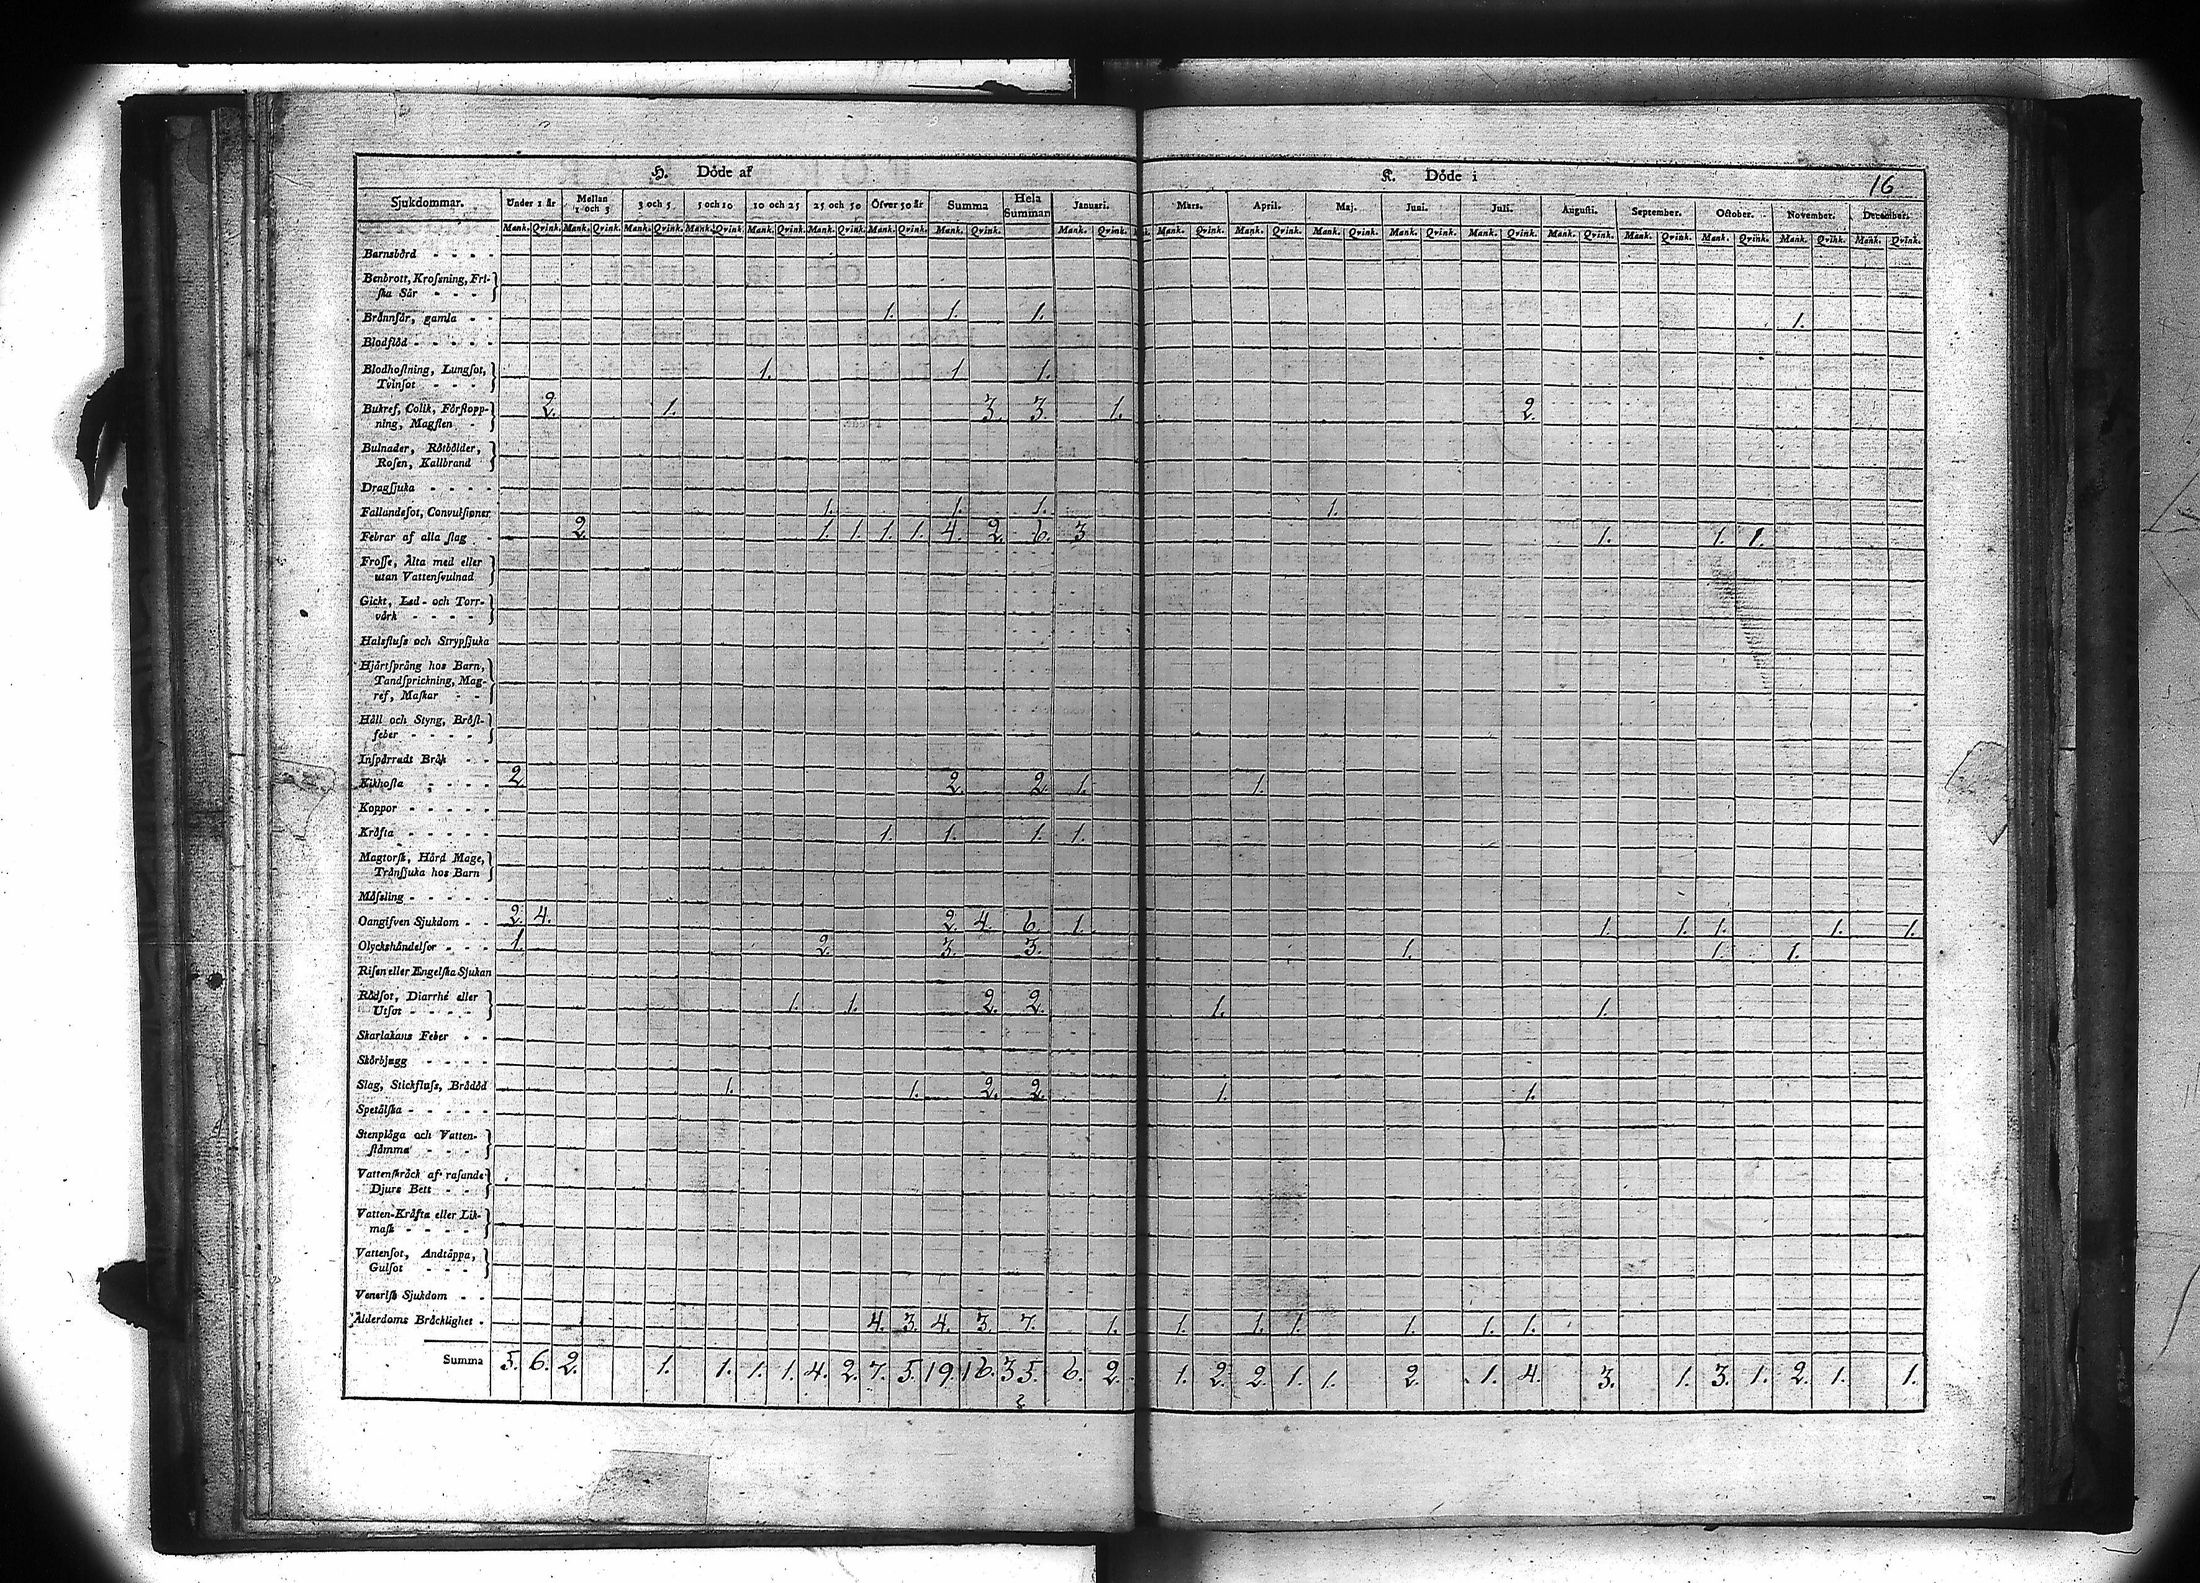 H. Dôde af K. Dôde i 16
Sjukdommar. Under 1 år Mellan 1 och 3 3 och 5 5 och 10 10 och 25 25 och 50 Öfver 50 år Summa Hela Summan Januari. Mars. April. Maj. Juni. Juli. Augusti. September. October. November. December.
Mank. Qvink. Mank. Qvink. Mank. Qvink. Mank. Qvink. Mank. Qvink. Mank. Qvink. Mank. Qvink. Mank. Qvink. Mank. Qvink. Mank. Qvink. Mank. Qvink. Mank. Qvink. Mank. Qvink. Mank. Qvink. Mank. Qvink. Mank. Qvink. Mank. Qvink. Mank. Qvink. Mank. Qvink.
Barnsbörd - - - -
Benbrott, Krosning, Fri-
ska Sår - - -
Brånnsår, gamla - - 1. 1. 1. 1.
Blodflöd - - - - -
Blodhostning, Lungsot,
Tvinsot - - - 1. 1 1.
Bukref, Colik, Förstopp-
ning, Magsten - 2. 1. 3. 3. 1. 2.
Bulnader, Rôtbôlder,
Rosen, Kallbrand
Dragsjuka - - - -
Fallandesot, Convulsioner 1. 1. 1. 1.
Febrar af alla slag - 2. 1. 1. 1. 1. 4. 2. 6. 3 1. 1. 1.
Frosse, Älta med eller
utan Vattensvulnad
Gickt, Led- och Torr-
värk - - - -
Halsfluss och Strypsjuka
Hjårtsprång hos Barn,
Tandsprickning, Mag-
ref, Maskar - -
Håll och Styng, Bröst-
feber - - - -
Inspårradt Bråk - -
Kikhosta - - - - 2. 2. 2. 1. 1.
Koppor - - - - -
Kråfta - - - - - 1. 1. 1. 1.
Magtorsk, Hård Mage,
Trånsjuka hos Barn
Måssling - - - - -
Oangifven Sjukdom - - 2. 4. 2. 4. 6. 1. 1. 1. 1. 1. 1.
Olyckshåndelser - - - 1. 2. 3. 3. 1. 1. 1.
Risen eller Engelska Sjukan
Rôdsot, Diarrhé eller
Utsot - - - - 1. 1. 2. 2. 1. 1.
Skarlakans Feber - -
Skôrbjugg - - - -
Slag, Stickfluss, Brådôd 1. 1. 2. 2. 1. 1.
Spetålska - - - - -
Stenplåga och Vatten-
ståmma - - -
Vattenskråck af rasande
Djurs Bett - -
Vatten-Kråfta eller Lik-
mask - - - -
Vattensot, Andtåppa,
Gulsot - - -
Venerisk Sjukdom - -
Ålderdoms Bråcklighet - 4. 3. 4. 3. 7. 1. 1. 1. 1. 1. 1. 1.
Summa 5. 6. 2. 1. 1. 1. 1. 4. 2. 7. 5. 19. 16. 35. 6. 2. 1. 2. 2. 1. 1. 2. 1. 4. 3. 1. 3. 1. 2. 1. 1.